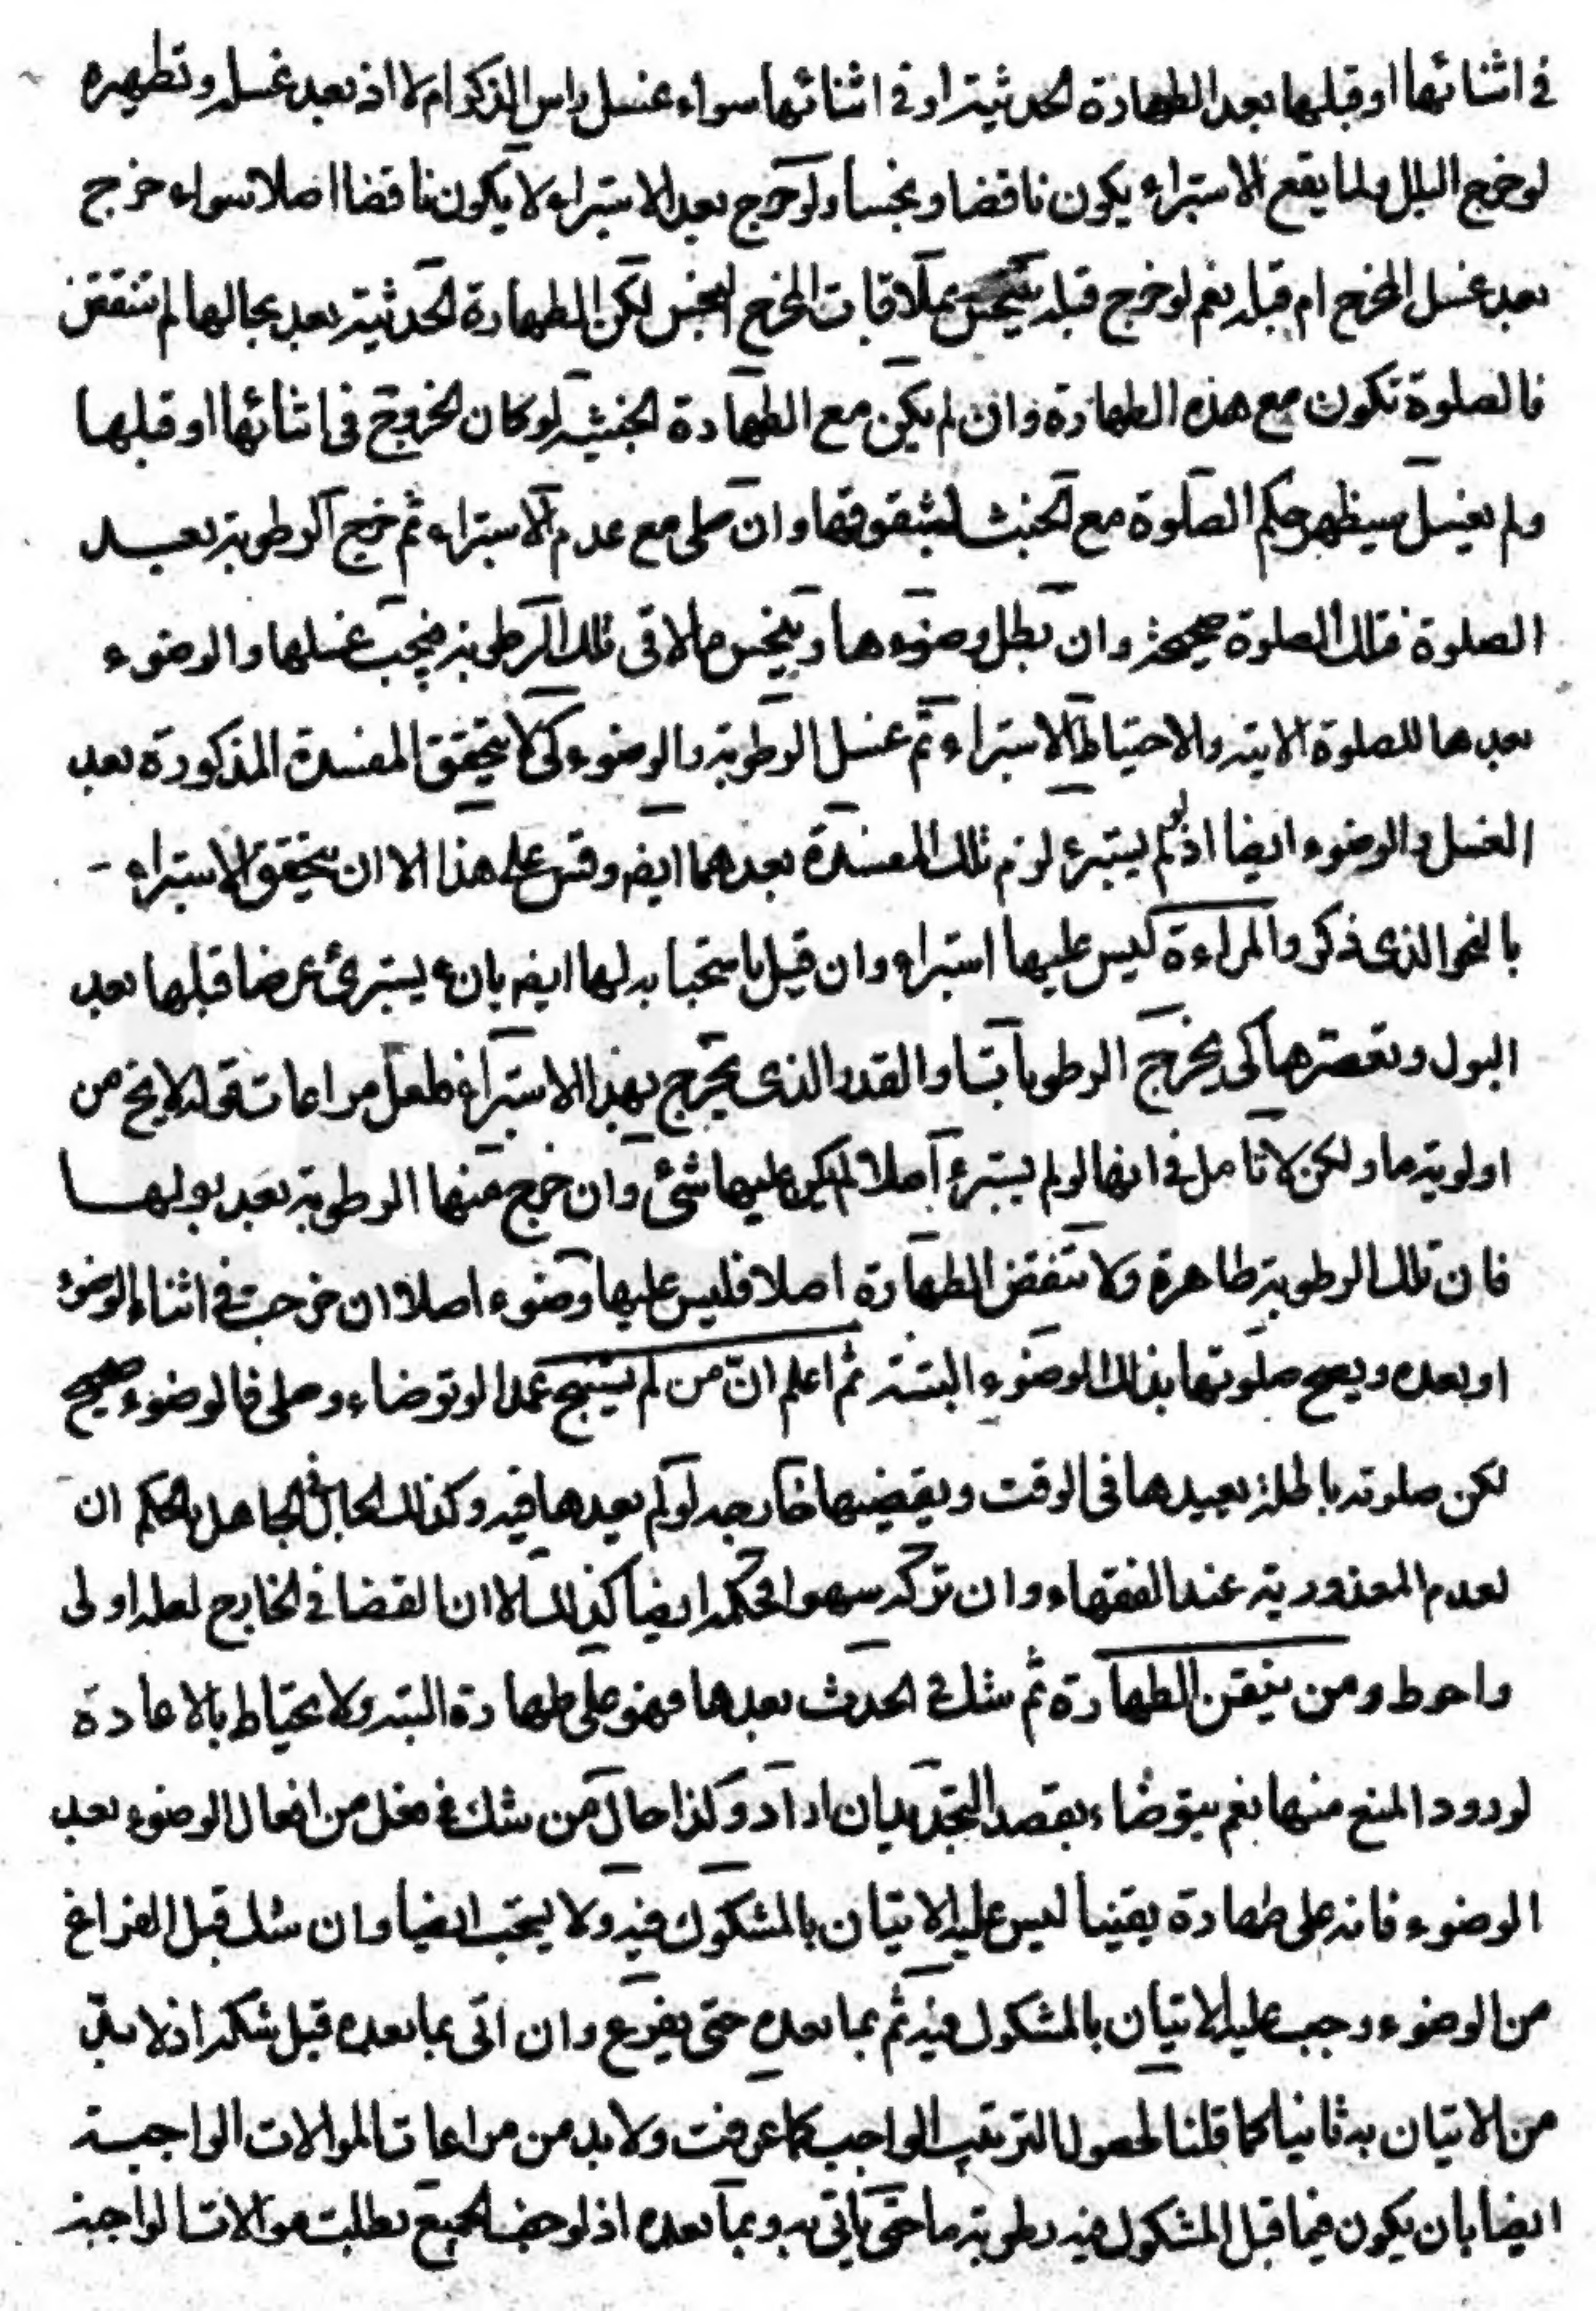 في اثنائها او قبلها بعد الطهارة الحدثية او في اثنائها سواء غسل راس الذكر ام لا اذ بعد غسله وتطهيره
لو خرج البلل ولما يقع الاستبراء يكون ناقضا ونجسا ولو خرج بعد الاستبراء لا يكون ناقضا اصلا سواء خرج
بعد غسل المخرج ام قبله نعم لو خرج قبله يتنجس بملاقات المخرج النجس لكن الطهارة الحدثية بعد بحالها لم تنتقض
فالصلوة تكون مع هذه الطهارة وان لم يكن مع الطهارة الخبثية لو كان الخروج في اثنائها او قبلها
ولم يغسل سيظهر حكم الصلوة مع الخبث بشقوقها وان صلى مع عدم الاستبراء ثم خرج الرطوبة بعد
الصلوة فتلك الصلوة صحيحة وان بطل وضوءها ويتنجس ما لاقى تلك الرطوبة فيجب غسلها والوضوء
بعدها للصلوة الاتية والاحتياط الاستبراء ثم غسل الرطوبة والوضوء كى لا يتحقق المفسدة المذكورة بعد
الغسل والوضوء ايضا اذ لو لم يستبرء لزم تلك المفسدة بعدهما ايضا وقس على هذا الا ان يتحقق الاستبراء
بالنحو الذى ذكر والمراءة ليس عليها استبراء وان قيل باستحبابه لها ايضا بان يستبرئ عرضا قبلها بعد
البول وتعصرها كى يخرج الرطوبات والقدر الذى يخرج بهذا الاستبراء فلعل مراعات قوله لا يخ من
اولوية ما ولكن لا تامل في انها لو لم يستبرء اصلا لم يكن عليها شئ وان خرج منها الرطوبة بعد بولها
فان تلك الرطوبة طاهرة ولا تنقض الطهارة اصلا فليس عليها وضوء اصلا ان خرجت في اثناء الوضوء
او بعده ويصح صلوتها بذلك الوضوء البتة ثم اعلم ان من لم يستنج عمدا لو توضاء وصلى فالوضوء صحيح
لكن صلوته باطلة يعيدها في الوقت ويقضيها خارجه لو لم يعدها فيه وكذلك الحال في الجاهل بالحكم ان
لعدم المعذورية عند الفقهاء وان تركه سهوا فحكمه ايضا كذلك الا ان القضا في الخارج لعله اولى
واحوط ومن تيقن الطهارة ثم شك في الحدث بعدها فهو على طهارة البتة ولا يحتاط بالاعادة
لورود المنع منها نعم يتوضاء بقصد التجديد ان اراد وكذا حال من شك في فعل من افعال الوضوء بعد
الوضوء فانه على طهارة يقينا ليس عليه الاتيان بالمشكوك فيه ولا يستحب ايضا وان شك قبل الفراغ
من الوضوء وجب عليه الاتيان بالمشكوك فيه ثم بما بعده حتى يفرغ وان اتى بما بعده قبل شكه اذ لا بد
من الاتيان به ثانيا كما قلنا لحصول الترتيب الواجب كما عرفت ولا بد من مراعات الموالات الواجبة
ايضا بان يكون فيما قبل المشكوك فيه رطوبة ما حتى ياتى به وبما بعده اذ لو جف الجميع بطلت موالات الواجبة